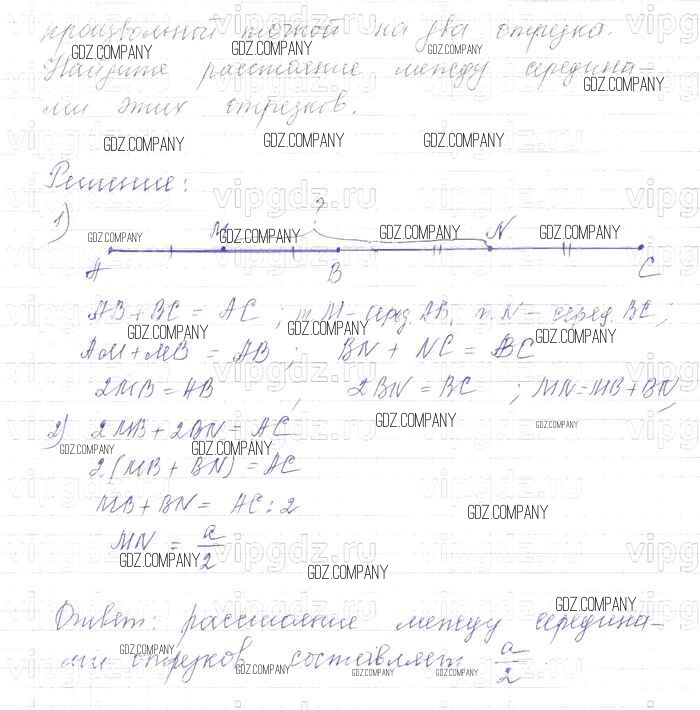 произвольной точкой на два отрезка.
Найдите расстояние между середина-
ми этих отрезков.
Решение:
1)
?
M N
A B C
AB + BC = AC ; т. M - серед. AB, т. N - серед. BC;
AM + MB = AB ; BN + NC = BC
2MB = AB , 2BN = BC ; MN = MB + BN,
2) 2MB + 2BN = AC
2(MB + BN) = AC
MB + BN = AC : 2
MN = a/2
Ответ: расстояние между середина-
ми отрезков составляет a/2
GDZ.COMPANY
vipgdz.ru